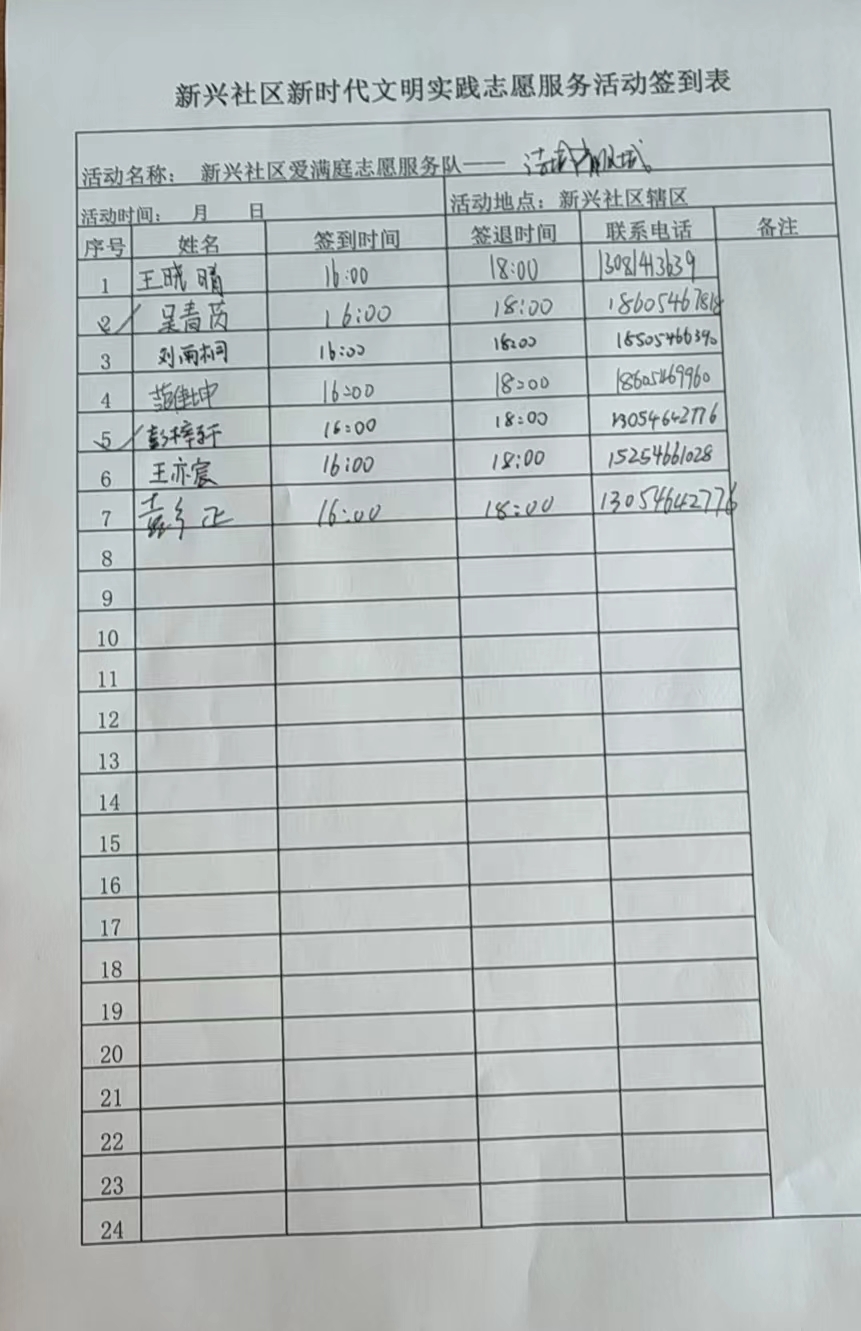 新兴社区新时代文明实践志愿服务活动签到表
活动名称： 新兴社区爱满庭志愿服务队——
活动时间： 月 日 活动地点：新兴社区辖区
序号 姓名 签到时间 签退时间 联系电话 备注
1 王晓晴 16:00 18:00 13081413639
2 吴青茵 16:00 18:00 18605467818
3 刘雨桐 16:00 18:00 18505466390
4 16:00 18:00 18605469960
5 彭梓轩 16:00 18:00 13054642776
6 王亦宸 16:00 18:00 15254661028
7 16:00 18:00 13054642776
8
9
10
11
12
13
14
15
16
17
18
19
20
21
22
23
24